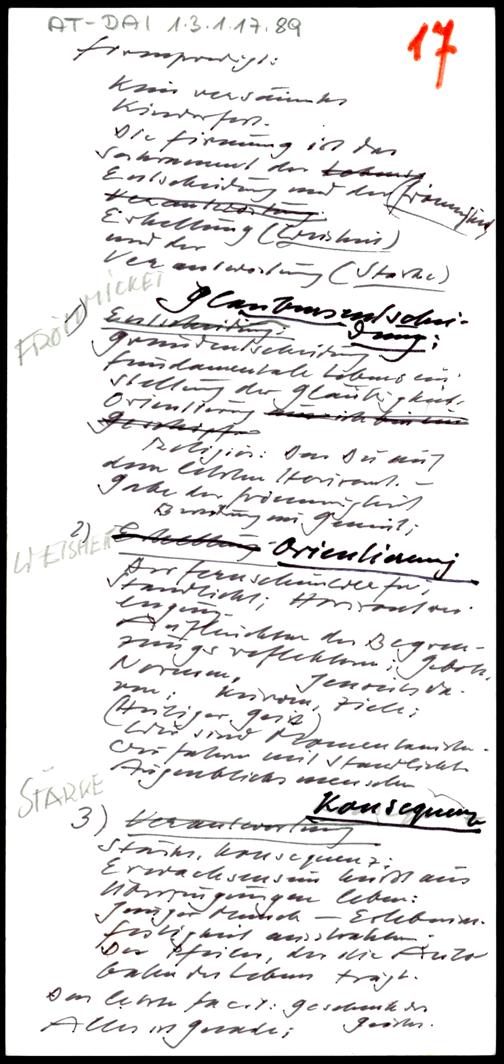 AT-DAI 1.3.1.17.89
17
Firmpredigt:
Kein versäumtes
Kinderfest.
Die Firmung ist das
Sakrament der Lebens
Entscheidung und der (Frömmigkeit
Verantwortung
Erhellung (Weisheit)
und der
Verantwortung (Stärke)
FRÖMMIGKEIT
1) Glaubensentschei-
Entscheidung: dung:
Grundentscheidung
fundamentale Lebensein-
stellung der Gläubigkeit.
Orientierung
Religion: Das Du auf
dem letzten Horizont. -
Gabe der Frömmigkeit
Beratung im Gemüt;
WEISHEIT
2) Erhellung Orientierung
Der Fernscheinwerfer,
Standlicht; Horizontver-
engung
Aufleuchten der Begren-
zungsreflektoren: Gebote,
Normen,
Ziele;
(Heiliger Geist)
Wir sind Momentanisten.
Wir fahren mit Standlicht
Augenblicksmenschen
STÄRKE
Konsequenz
3) Verantwortung
Stärke, Konsequenz;
Erwachsensein heißt aus
Überzeugungen leben:
Junger Mensch - Erlebnis-
festigkeit ausstrahlen.
Der Pfeiler, der die Auto
bahn des Lebens trägt.
Das letzte Facit: Geschenk des
Alles ist Gnade; Geistes.